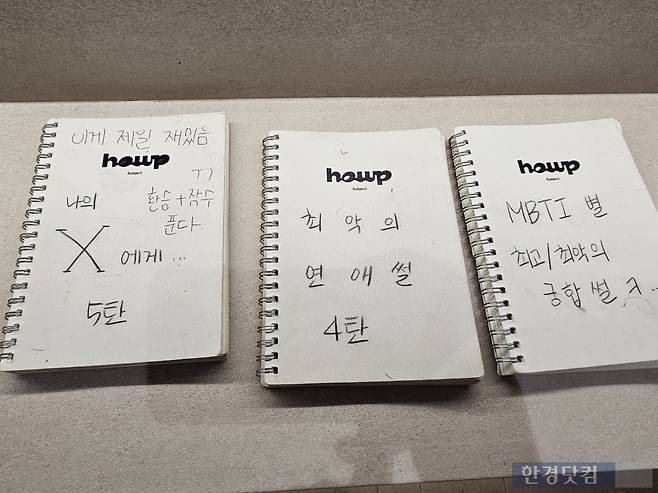 이게 제일 재밌음
howp
Subject.
ㄱㄱ
나의 환승+잠수
푼다.
X 에게...
5탄
howp
Subject.
최악의
연애썰
4탄
howp
Subject.
MBTI 별
최고/최악의
궁합썰 ㅋ...
한경닷컴